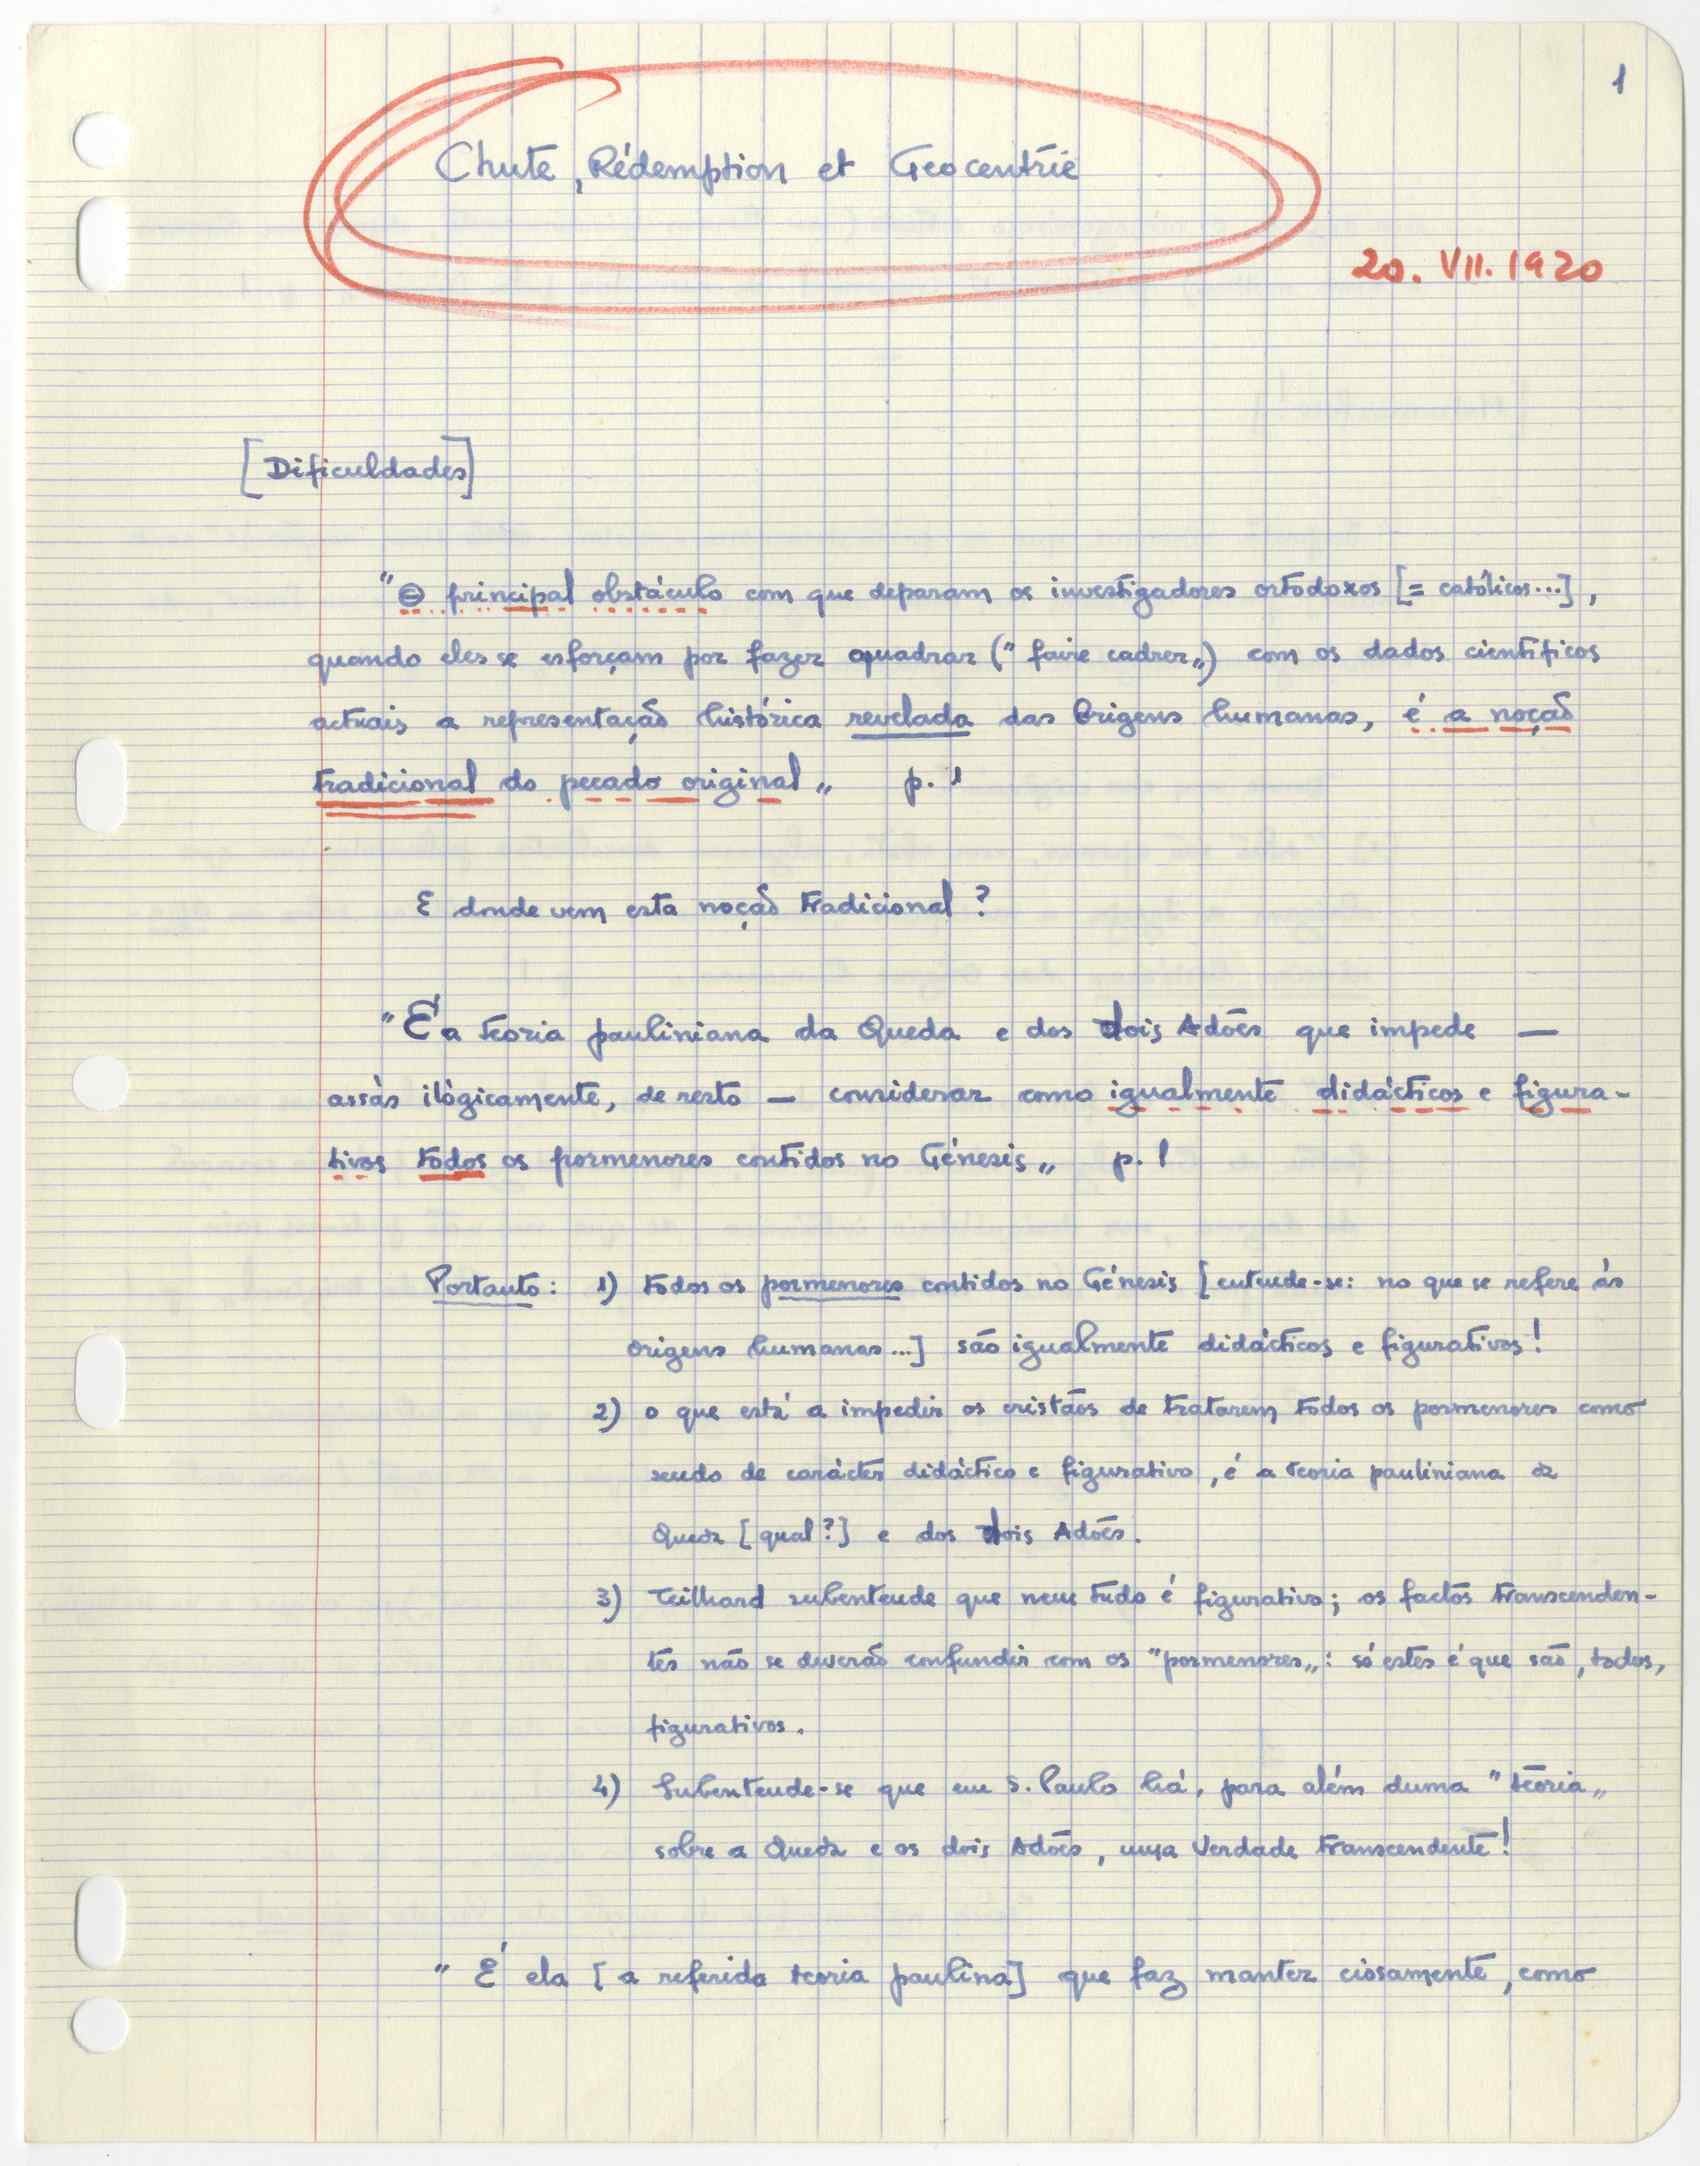 1
Chute, Rédemption et Geocentrie
20. VII. 1920
[Dificuldades]
"O principal obstáculo com que deparam os investigadores ortodoxos [= católicos...],
quando eles se esforçam por fazer quadrar ("faire cadrer„) com os dados científicos
actuais a representação histórica revelada das Origens humanas, é a noção
tradicional do pecado original„ p. 1
E donde vem esta noção tradicional?
"É a teoria pauliniana da Queda e dos dois Adões que impede —
assás ilògicamente, de resto — considerar como igualmente didácticos e figura-
tivos todos os pormenores contidos no Génesis„ p. 1
Portanto: 1) todos os pormenores contidos no Génesis [entende-se: no que se refere às
origens humanas...] são igualmente didácticos e figurativos!
2) o que está a impedir os cristãos de tratarem todos os pormenores como
sendo de carácter didáctico e figurativo, é a teoria pauliniana da
Queda [qual?] e dos dois Adões.
3) Teilhard subentende que nem tudo é figurativo; os factos transcenden-
tes não se deverão confundir com os "pormenores„: só estes é que são, todos,
figurativos.
4) Subentende-se que em S. Paulo há, para além duma "teoria„
sobre a Queda e os dois Adões, uma Verdade transcendente!
"É ela [a referida teoria paulina] que faz manter ciosamente, como